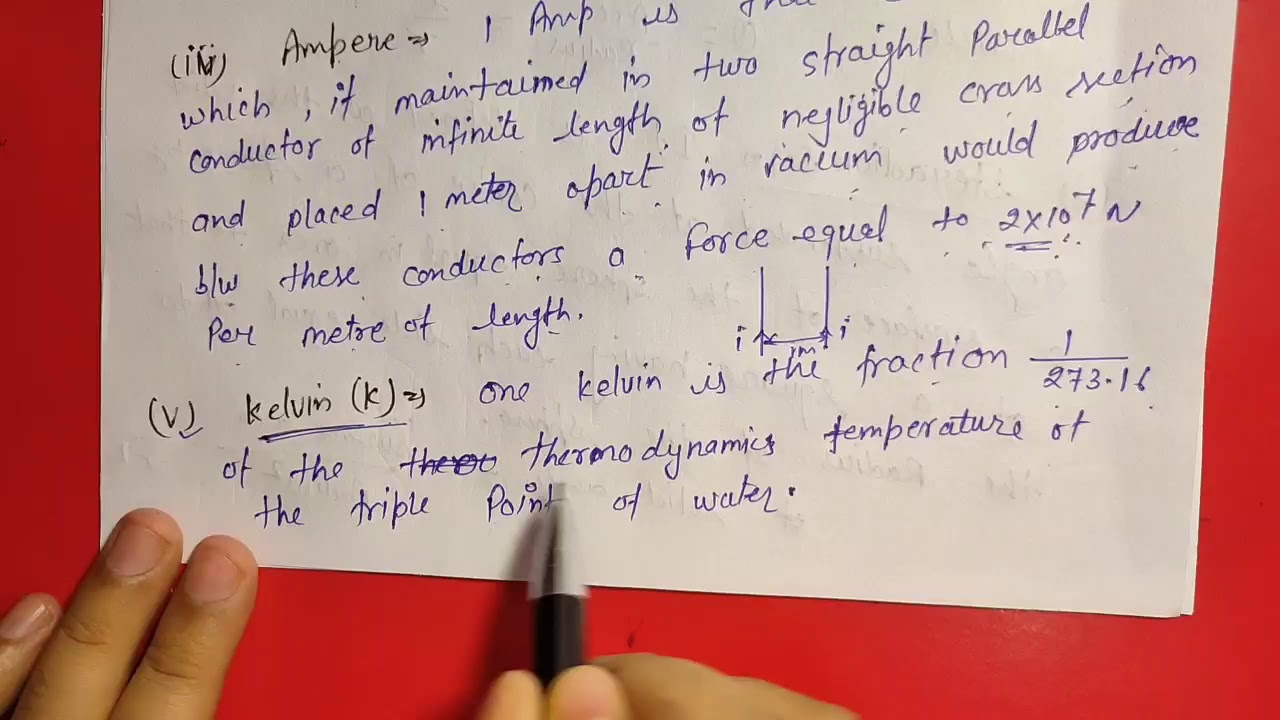 (iv) Ampere ⇒ 1 Amp is that
which, if maintained in two straight Parallel
conductor of infinite length of negligible cross section
and placed 1 meter apart in vaccum would produce
b/w these conductors a force equal to 2×10⁷ N
Per metre of length.
i 1m i
(v) kelvin (k) ⇒ one kelvin is the fraction 1/273.16
of the thermodynamics temperature of
the triple Point of water.